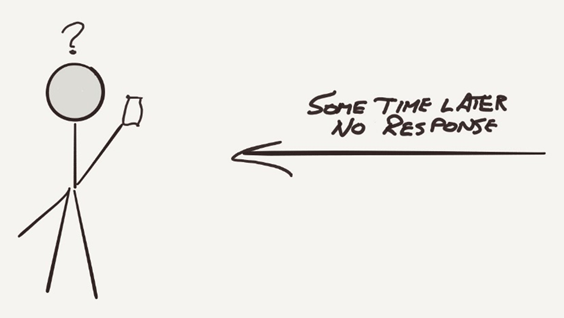 ?
SOME TIME LATER
NO RESPONSE